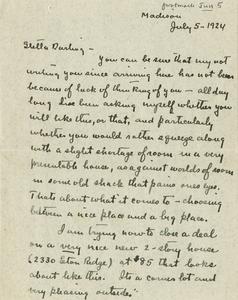 postmark July 5
Madison
July 5 - 1924
Stella Darling -
You can be sure that my not
writing you since arriving here has not been
because of lack of thinking of you - all day
long I've been asking myself whether you
will like this, or that, and particularly
whether you would rather squeeze along
with a slight shortage of room in a very
presentable house, as against worlds of room
in some old shack that pains one's eyes.
That's about what it comes to - choosing
between a nice place and a big place.
I am trying now to close a deal
on a very nice new 2-story house
(2330 Eton Ridge) at $85 that looks
about like this. It's a corner lot and
very pleasing outside.